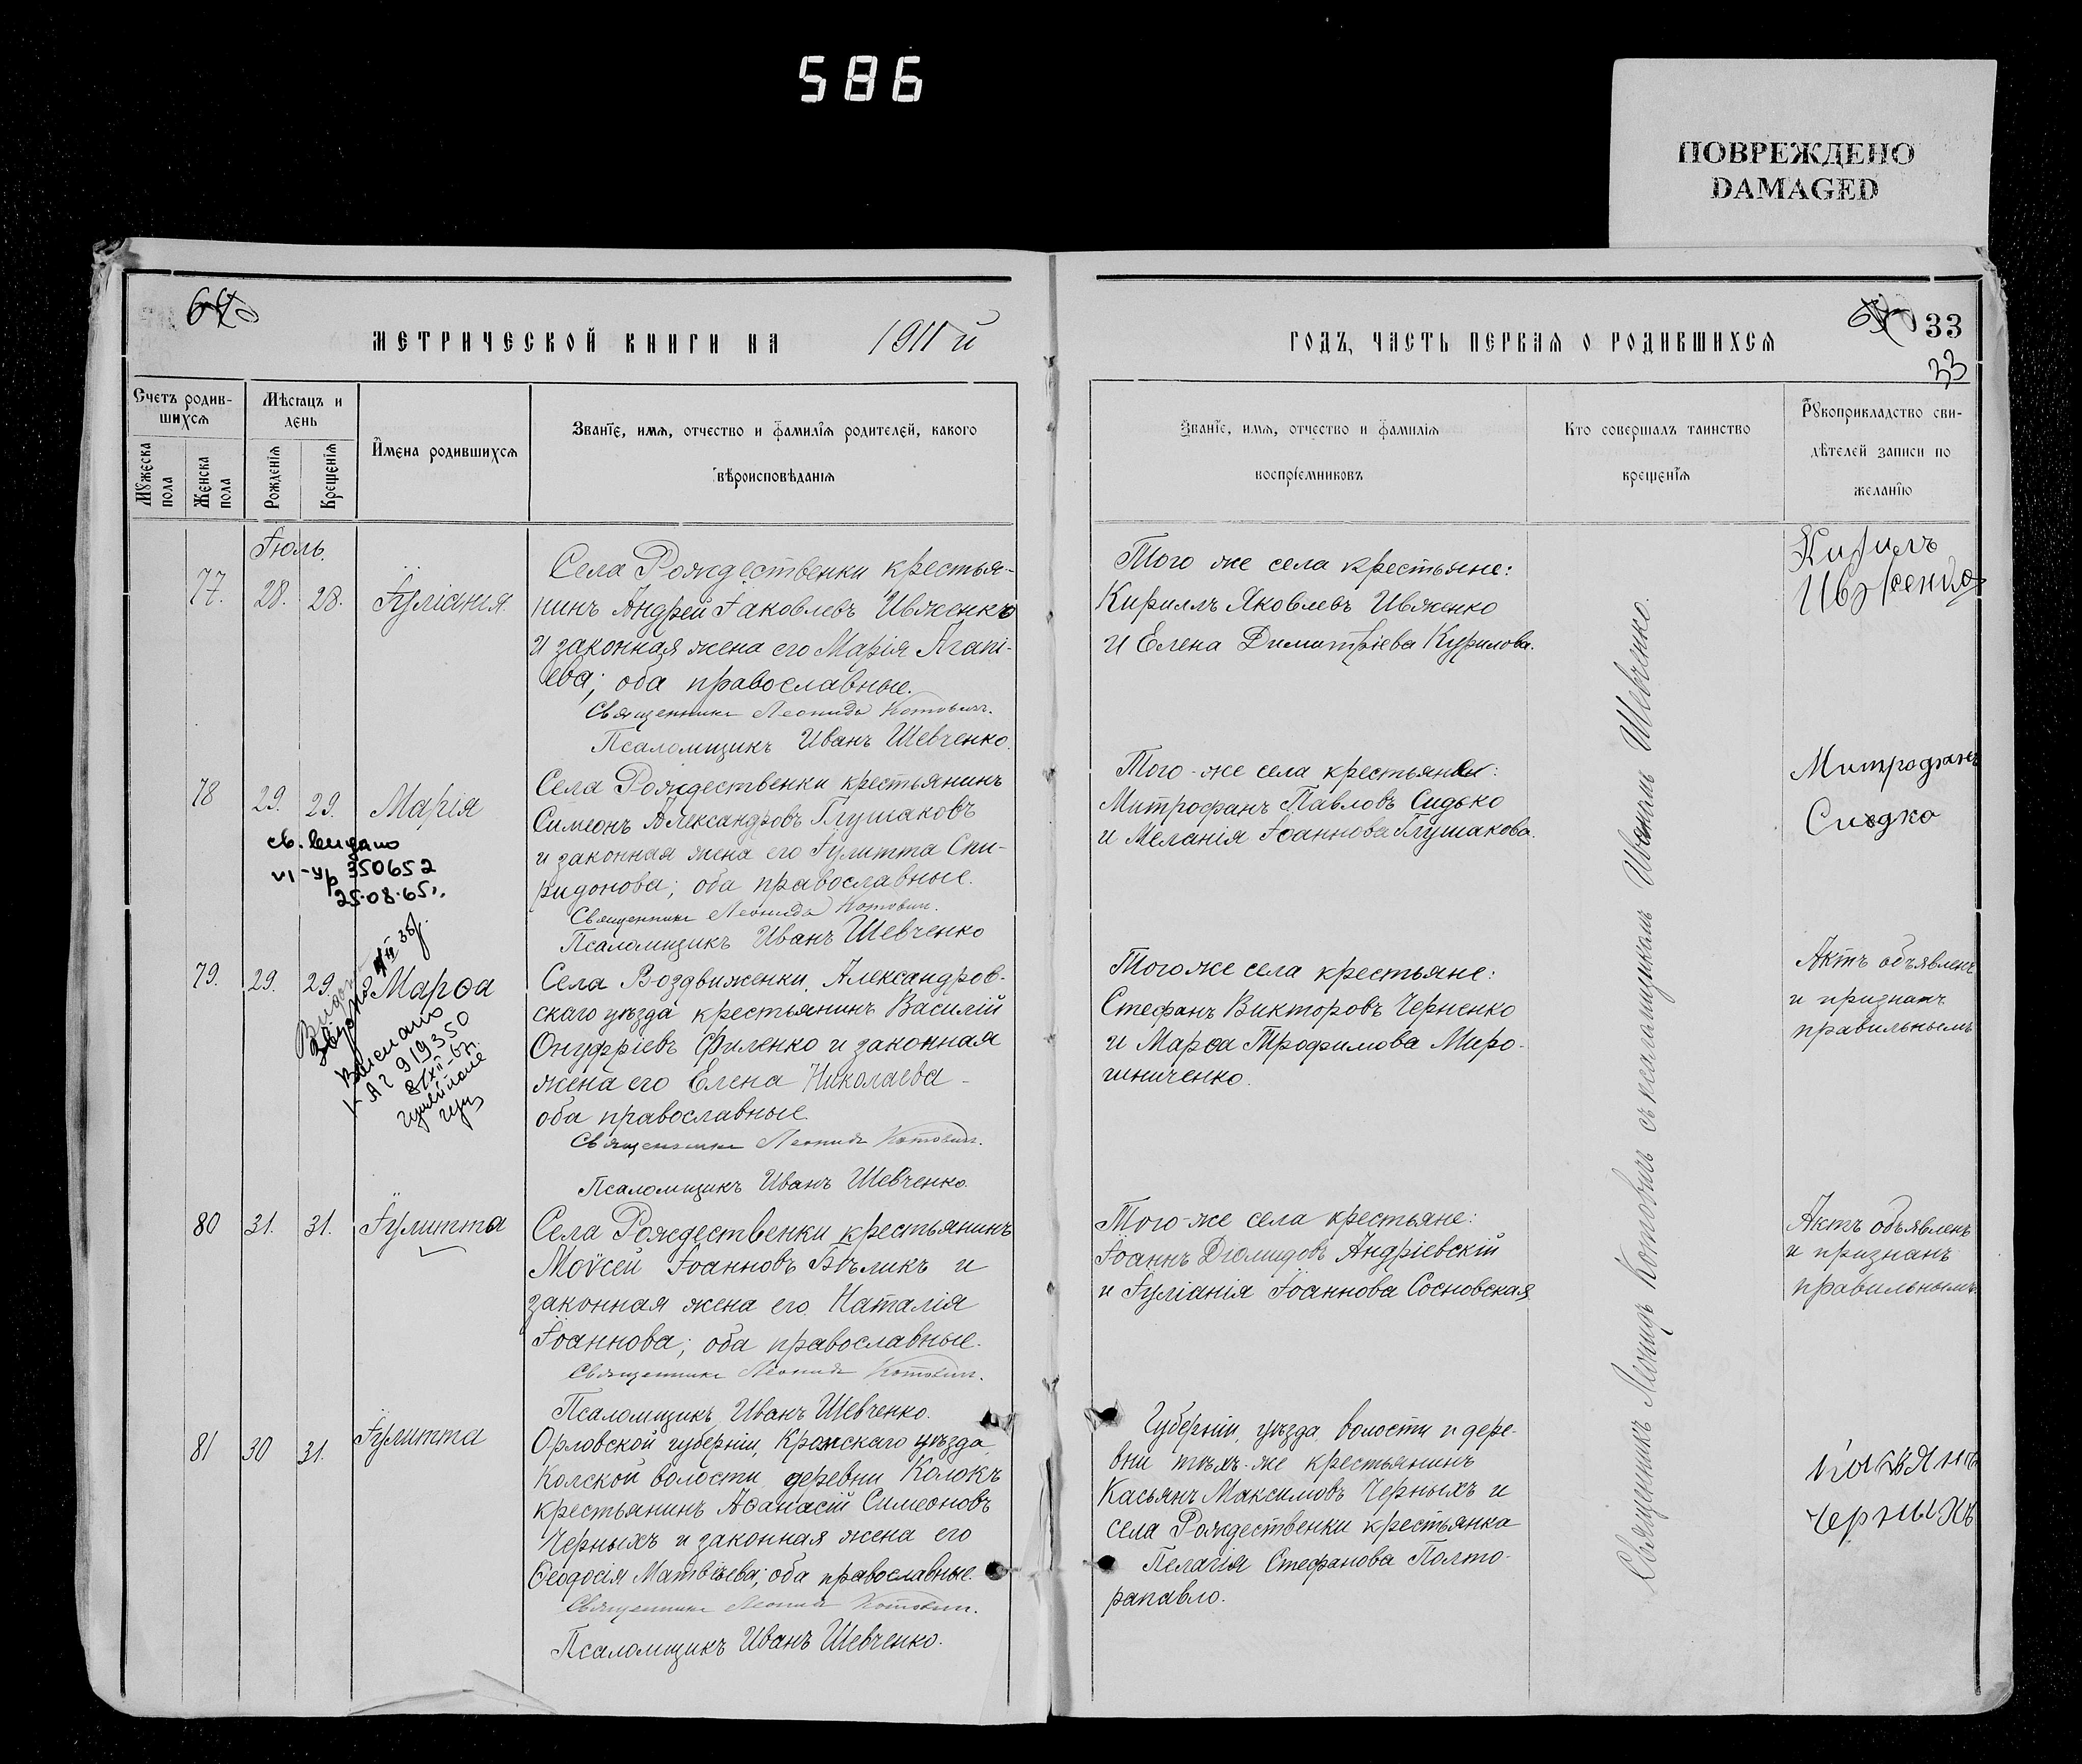 586
ПОВРЕЖДЕНО
DAMAGED
МЕТРИЧЕСКОЙ КНИГИ НА 1911 й
ГОДЪ, ЧАСТЬ ПЕРВАЯ О РОДИВШИХСЯ
33
33
Счетъ родив-
шихся
Мужеска пола
Женска пола
Мѣсяцъ и
день
Рожденія
Крещенія
Имена родившихся
Званіе, имя, отчество и фамилія родителей, какого
вѣроисповѣданія
Званіе, имя, отчество и фамилія
воспріемниковъ
Кто совершалъ таинство
крещенія
Рукоприкладство сви-
дѣтелей записи по
желанію
Іюль.
77. 28. 28. Іуліанія
Села Рождественки крестья-
нинъ Андрей Іаковлевъ Ивженко
и законная жена его Марія Агапі-
ева; оба православные.
Священникъ Леонидъ Котовичъ.
Псаломщикъ Иванъ Шевченко.
Того же села крестьяне:
Кириллъ Яковлевъ Ивженко
и Елена Димитріева Курилова.
Кирилъ
Ивженко
78 29. 29. Марія
св.
VI-ур 350652
25.08.65
Села Рождественки крестьянинъ
Симеонъ Александровъ Глушаковъ
и законная жена его Іулитта Спи-
ридонова; оба православные.
Священникъ Леонидъ Котовичъ.
Псаломщикъ Иванъ Шевченко
Того-же села крестьяне:
Митрофанъ Павловъ Сидько
и Меланія Іоаннова Глушакова.
Митрофанъ
Сидко
79. 29. 29. Марѳа
Выслано
919350
Села Воздвиженки, Александров-
скаго уѣзда крестьянинъ Василій
Онуфріевъ Филенко и законная
жена его Елена Николаева
оба православные
Священникъ Леонидъ Котовичъ.
Псаломщикъ Иванъ Шевченко.
Того же села крестьяне:
Стефанъ Викторовъ Черненко
и Марѳа Трофимова Миро-
шниченко.
Актъ объявленъ
и признанъ
правильнымъ
80 31. 31. Іулитта
Села Рождественки крестьянинъ
Моѵсей Іоанновъ Бѣликъ и
законная жена его Наталія
Іоаннова; оба православные.
Священникъ Леонидъ Котовичъ.
Псаломщикъ Иванъ Шевченко.
Того-же села крестьяне:
Іоаннъ Діомидовъ Андріевскій
и Іуліанія Іоаннова Сосновская
Актъ объявленъ
и признанъ
правильнымъ
81 30 31. Іулитта
Орловской губерніи, Кромскаго уѣзда,
Колской волости деревни Колокъ
крестьянинъ Аѳанасій Симеоновъ
Черныхъ и законная жена его
Ѳеодосія Матвѣева; оба православные.
Священникъ Леонидъ Котовичъ.
Псаломщикъ Иванъ Шевченко.
Губерніи, уѣзда, волости и дере-
вни тѣхъ-же крестьянинъ
Касьянъ Максимовъ Черныхъ и
села Рождественки крестьянка
Пелагія Стефанова Полто-
рапавло.
Черныхъ
Священникъ Леонидъ Котовичъ съ псаломщикомъ Иваномъ Шевченко.